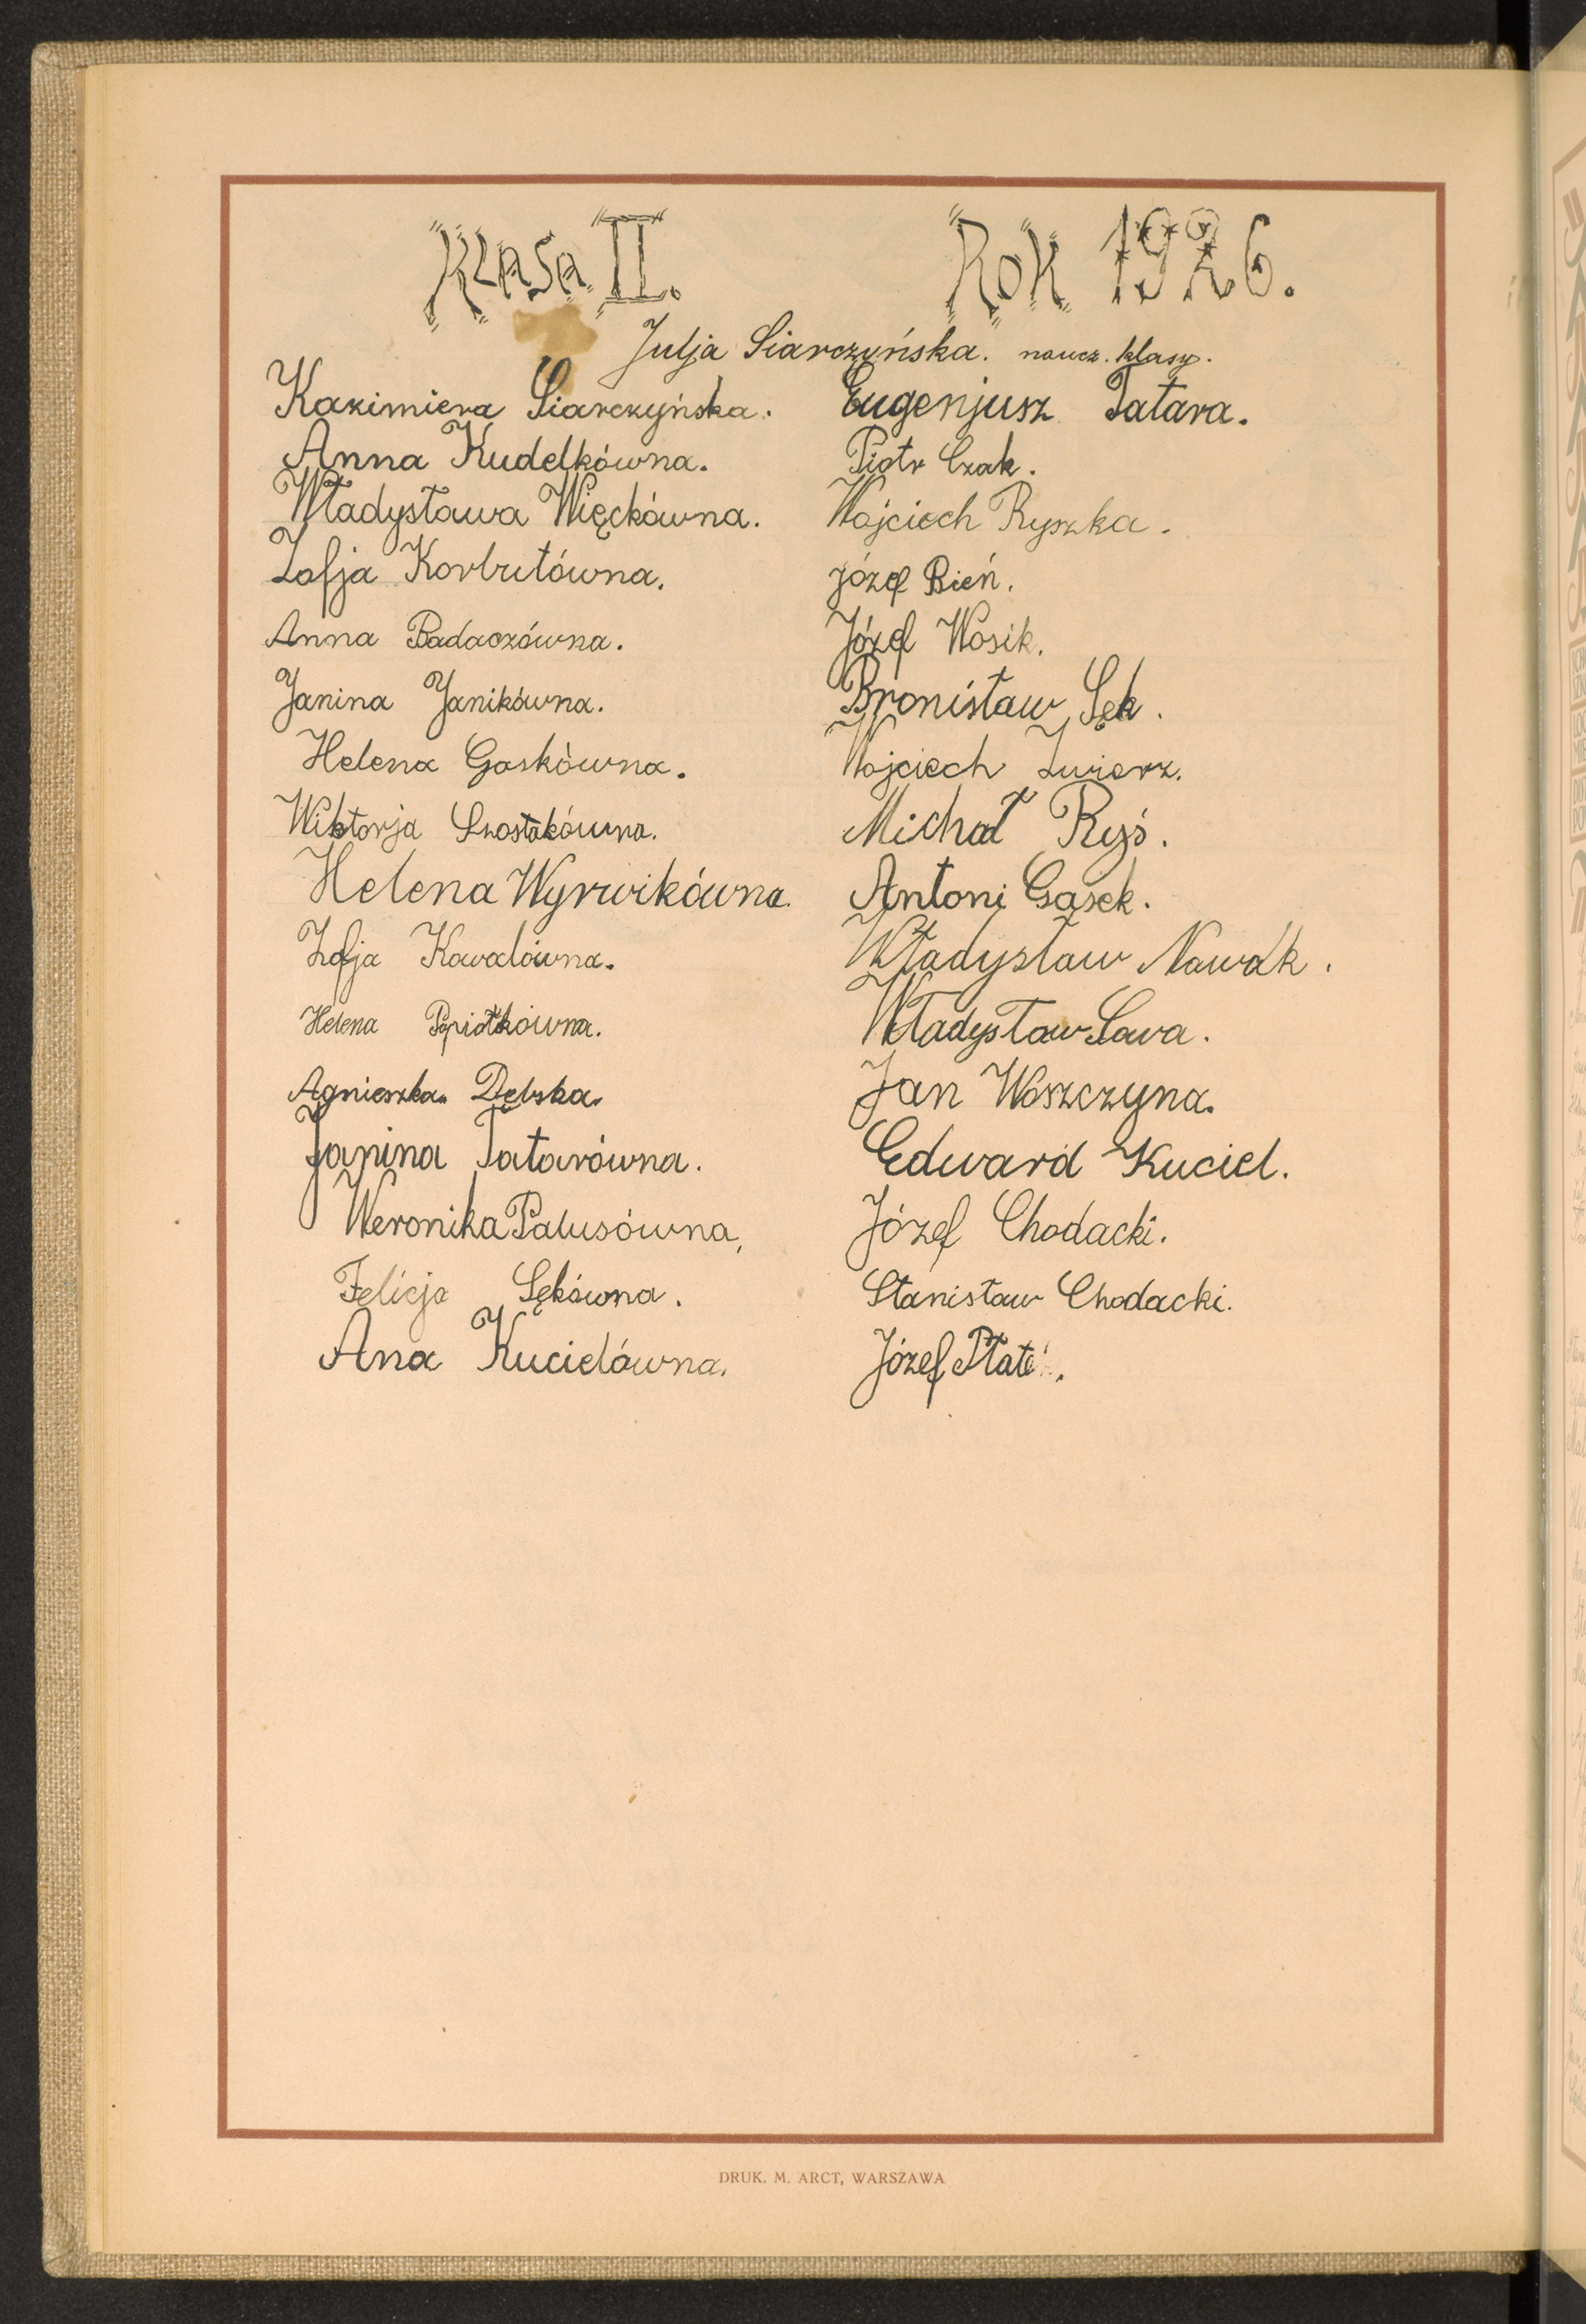 Klasa II.
Rok 1926.
Julja Siarczyńska. naucz. klasy.
Kazimiera Siarczyńska.
Anna Kudelkówna.
Władysława Więckówna.
Zofja Korbutówna.
Anna Badaczówna.
Janina Janikówna.
Helena Gaskówna.
Wiktorja Szostakówna.
Helena Wyrwikówna.
Zofja Kowalówna.
Helena Popiołkówna.
Agnieszka Dębska.
Janina Tatarówna.
Weronika Palusówna,
Felicja Sękówna.
Ana Kucielówna.
Eugenjusz Tatara.
Piotr Czak.
Wojciech Ryszka.
Józef Bień.
Józef Wosik.
Bronisław Sęk.
Wojciech Zwierz.
Michał Ryś.
Antoni Gasek.
Władysław Nawak.
Władysław Sawa.
Jan Woszczyna.
Edward Kuciel.
Józef Chodacki.
Stanisław Chodacki.
Józef
DRUK. M. ARCT, WARSZAWA